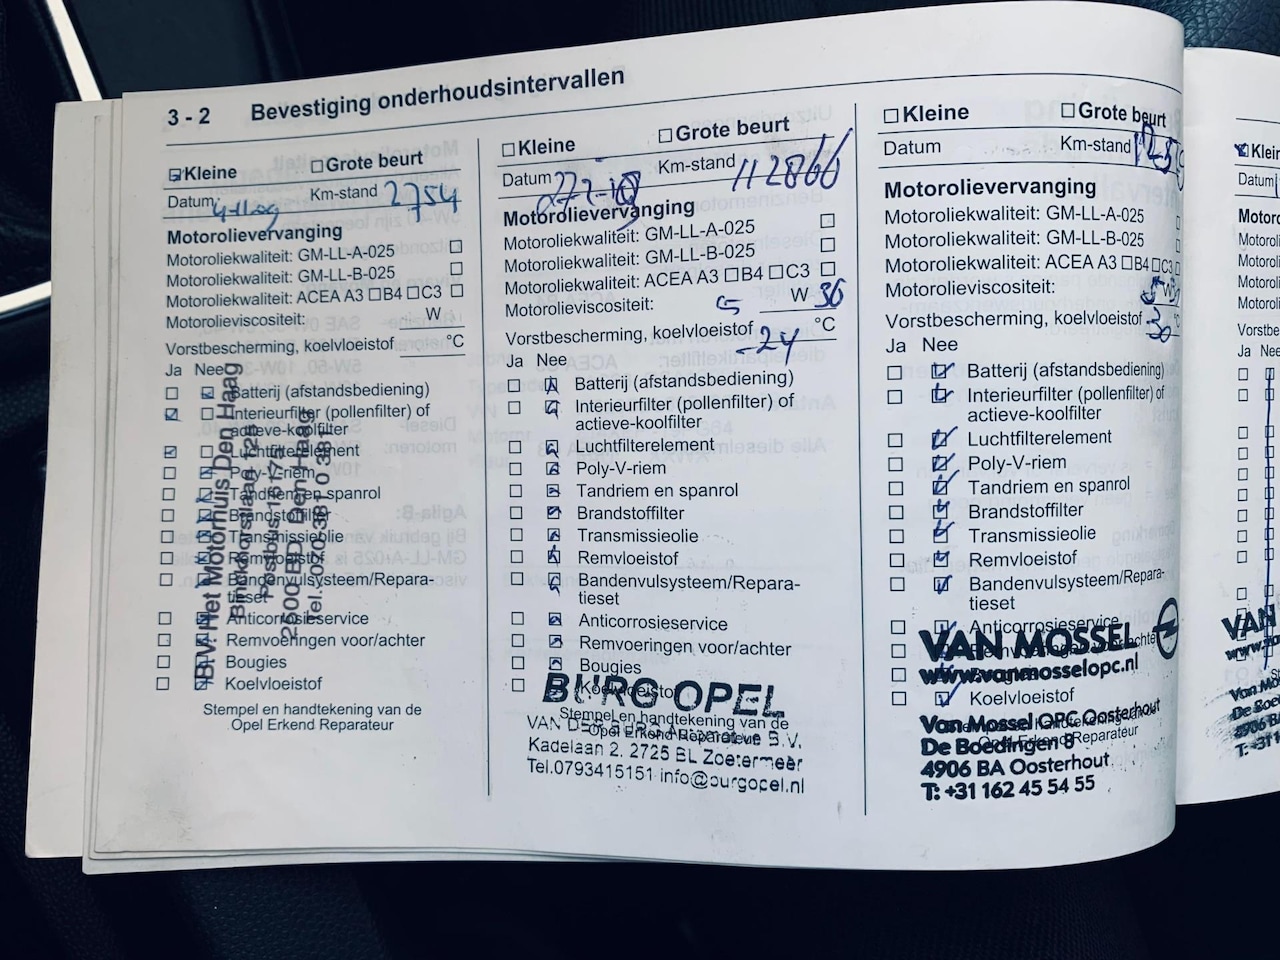 3 - 2 Bevestiging onderhoudsintervallen
☑Kleine ☐Grote beurt
Datum Km-stand 2754
Motorolievervanging
Motoroliekwaliteit: GM-LL-A-025 ☐
Motoroliekwaliteit: GM-LL-B-025 ☐
Motoroliekwaliteit: ACEA A3 ☐B4 ☐C3 ☐
Motorolieviscositeit: W
Vorstbescherming, koelvloeistof °C
Ja Nee
Batterij (afstandsbediening)
Interieurfilter (pollenfilter) of
actieve-koolfilter
Luchtfilterelement
Poly-V-riem
Tandriem en spanrol
Brandstoffilter
Transmissieolie
Remvloeistof
Bandenvulsysteem/Repara-
tieset
Anticorrosieservice
Remvoeringen voor/achter
Bougies
Koelvloeistof
Stempel en handtekening van de
Opel Erkend Reparateur
B.V. Het Motorhuis Den Haag
Binckhorstlaan
Postbus
Den Haag
☐Kleine ☐Grote beurt
Datum Km-stand 112866
Motorolievervanging
Motoroliekwaliteit: GM-LL-A-025 ☐
Motoroliekwaliteit: GM-LL-B-025 ☐
Motoroliekwaliteit: ACEA A3 ☐B4 ☐C3 ☐
Motorolieviscositeit: 5 W 30
Vorstbescherming, koelvloeistof -24 °C
Ja Nee
Batterij (afstandsbediening)
Interieurfilter (pollenfilter) of
actieve-koolfilter
Luchtfilterelement
Poly-V-riem
Tandriem en spanrol
Brandstoffilter
Transmissieolie
Remvloeistof
Bandenvulsysteem/Repara-
tieset
Anticorrosieservice
Remvoeringen voor/achter
Bougies
Koelvloeistof
BURG OPEL
Stempel en handtekening van de
Opel Erkend Reparateur
VAN DER BURG Zoetermeer B.V.
Kadelaan 2, 2725 BL Zoetermeer
Tel.0793415151 info@burgopel.nl
☐Kleine ☐Grote beurt
Datum Km-stand
Motorolievervanging
Motoroliekwaliteit: GM-LL-A-025
Motoroliekwaliteit: GM-LL-B-025
Motoroliekwaliteit: ACEA A3 ☐B4 ☐C3
Motorolieviscositeit: W
Vorstbescherming, koelvloeistof -30 °C
Ja Nee
Batterij (afstandsbediening)
Interieurfilter (pollenfilter) of
actieve-koolfilter
Luchtfilterelement
Poly-V-riem
Tandriem en spanrol
Brandstoffilter
Transmissieolie
Remvloeistof
Bandenvulsysteem/Repara-
tieset
Anticorrosieservice
Remvoeringen voor/achter
Bougies
Koelvloeistof
VAN MOSSEL
www.vanmosselopc.nl
Van Mossel OPC Oosterhout
De Boedingen 8
4906 BA Oosterhout
T: +31 162 45 54 55
Opel Erkend Reparateur
☑Klein
Datum
Motoro
Motorol
Motorol
Motorol
Motorol
Vorstbe
Ja Nee
VAN
Van Mos
De Boed
4906 B
T: +31 1